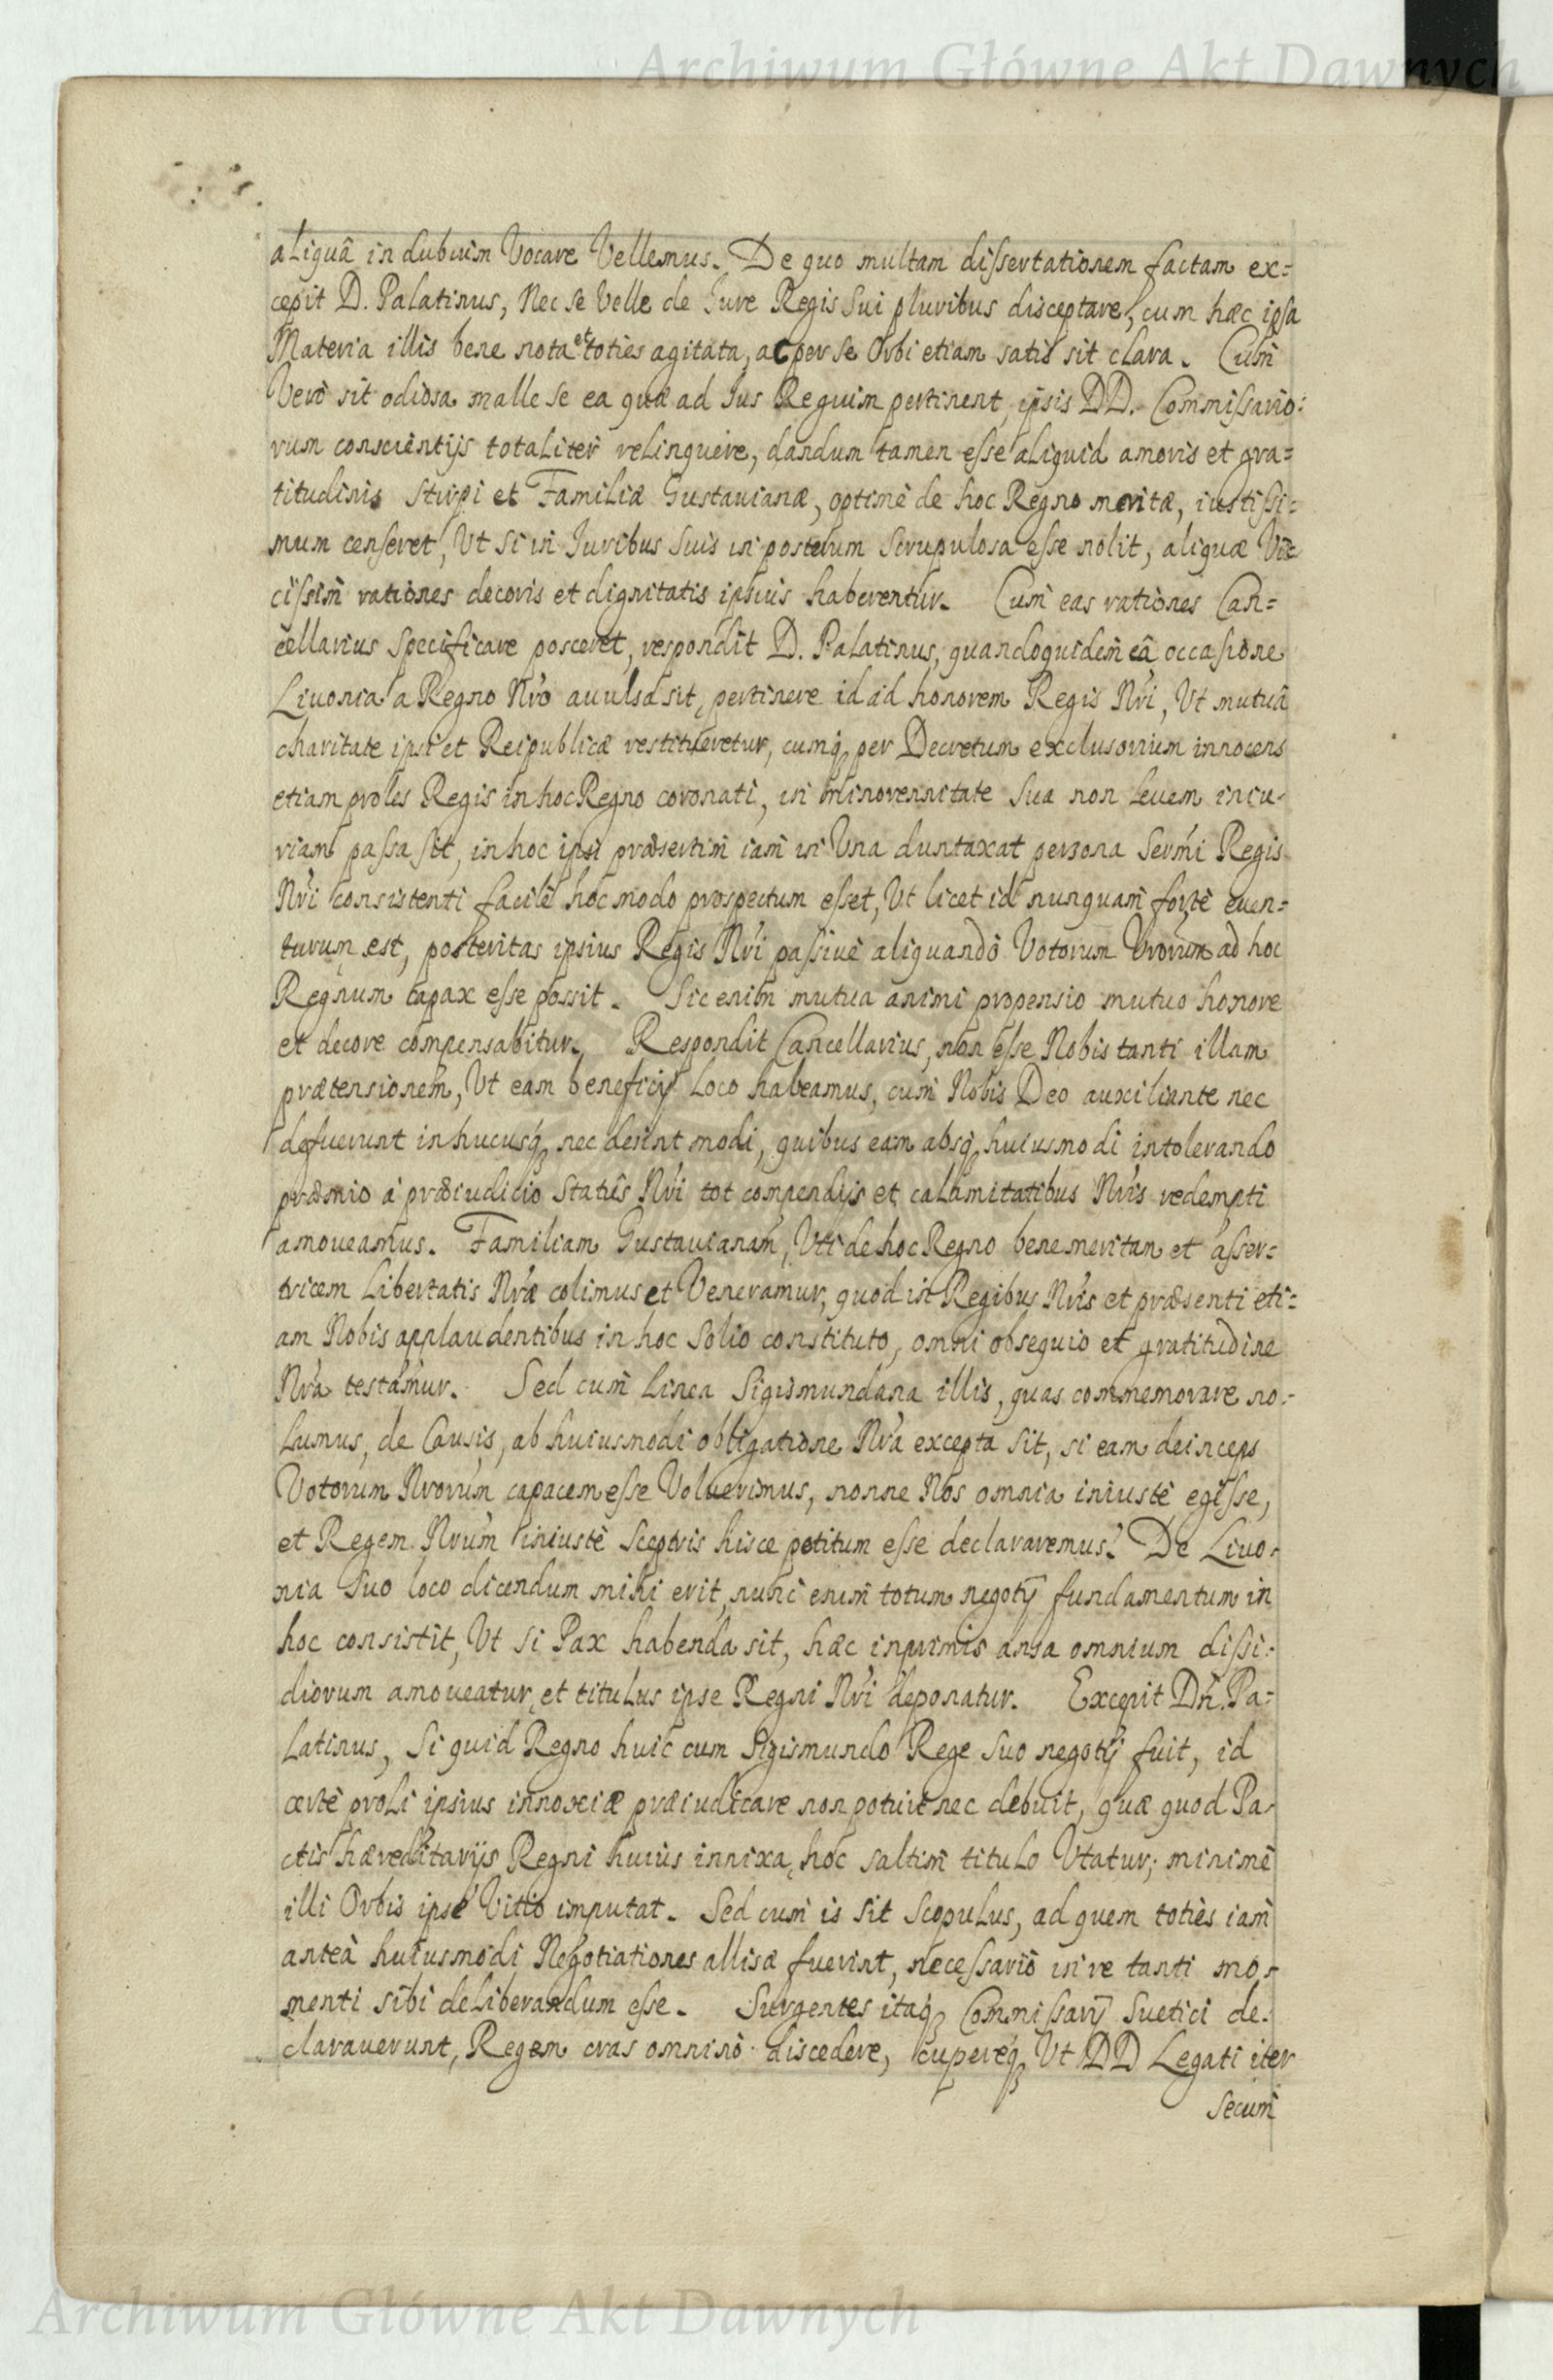 Archiwum Główne Akt Dawnych
aliquâ in dubium Vocare Vellemus. De quo multam dissertationem factam ex=
cepit D. Palatinus, Nec se Velle de Jure Regis Sui pluribus disceptare, cum hæc ipsa
Materia illis bene nota et toties agitata, ac per se Orbi etiam satis sit clara. Cum
Verò sit odiosa malle se ea quæ ad Jus Regium pertinent, ipsis DD. Commissario:
rum conscientijs totaliter relinquere, dandum tamen esse aliquid amoris et gra=
titudinis Stirpi et Familiæ Gustavianæ, optimè de hoc Regno meritæ, iustissi:
mum censeret, Ut si in Juribus Suis in posterum Scrupulosa esse nolit, aliquæ Vi=
cissim rationes decoris et dignitatis ipsius haberentur. Cum eas rationes Can=
cellarius Specificare posceret, respondit D. Palatinus, quandoquidem eâ occasione
Livonia a Regno Nro avulsa sit, pertinere id ad honorem Regis Nri, Ut mutuâ
charitate ipsi et Reipublicæ restitueretur, cumq per Decretum exclusorium innocens
etiam proles Regis in hoc Regno coronati, in minorennitate Sua non levem iniu-
riam passa sit, in hoc ipsi præsertim iam in Una duntaxat persona Sermi Regis
Nri consistenti facilè hoc modo prospectum esset, Ut licet id nunquam fortè even=
turum est, posteritas ipsius Regis Nri passivè aliquandò Votorum Vrorum ad hoc
Regnum capax esse possit. Sic enim mutua animi propensio mutuo honore
et decore compensabitur. Respondit Cancellarius, non esse Nobis tanti illam
prætensionem, Ut eam beneficij Loco habeamus, cum Nobis Deo auxiliante nec
defuerunt in hucusq nec desint modi, quibus eam absq huiusmodi intolerando
præmio à præiudicio Statûs Nri tot compendijs et calamitatibus Nris redempti
amoveamus. Familiam Gustavianam, Uti de hoc Regno bene meritam et asser=
tricem Libertatis Nræ colimus et Veneramur, quod in Regibus Nris et præsenti eti=
am Nobis applaudentibus in hoc Solio constituto, omni obsequio et gratitudine
Nra testamur. Sed cum Linea Sigismundana illis, quas commemorare no-
lumus, de Causis, ab huiusmodi obligatione Nra excepta sit, si eam deinceps
Votorum Nrorum capacem esse Voluerimus, nonne Nos omnia iniustè egisse,
et Regem Nrum iniustè Sceptris hisce potitum esse declararemus? De Livo-
nia Suo loco dicendum mihi erit, nunc enim totum negotij fundamentum in
hoc consistit, Ut si Pax habenda sit, hæc inprimis ansa omnium dissi:
diorum amoveatur, et titulus ipse Regni Nri deponatur. Excepit Dn. Pa=
latinus, Si quid Regno huic cum Sigismundo Rege Suo negotij fuit, id
certè proli ipsius innoxiæ præiudicare non potuit nec debuit, quæ quod Pa-
ctis hæreditarijs Regni huius innixa, hoc saltim titulo Utatur; minimè
illi Orbis ipse Vitio imputat. Sed cum is sit Scopulus, ad quem toties iam
anteà huiusmodi Negotiationes allisæ fuerint, necessariò in re tanti mo-
menti sibi deliberandum esse. Surgentes itaq Commissarij Suetici de-
claraverunt, Regem cras omninò discedere, cupereq Ut DD Legati iter
secum
Archiwum Główne Akt Dawnych